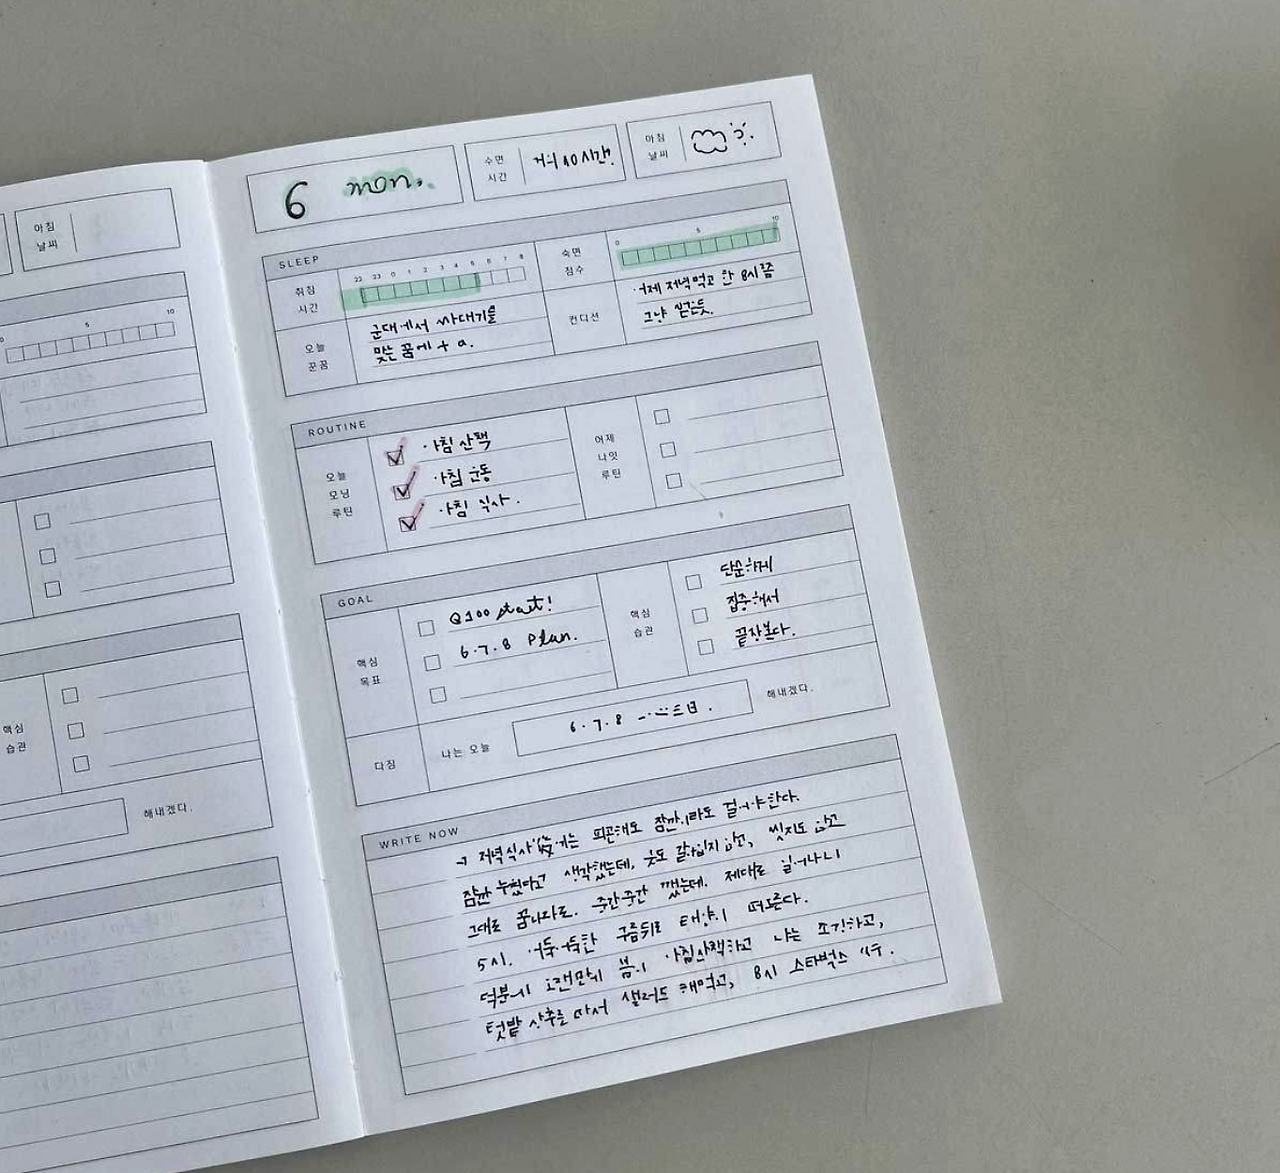 아침
날씨
0 5 10
핵심
습관
해내겠다.
6 mon.
수면
시간
거의 10시간?
아침
날씨
SLEEP
취침
시간
22 23 0 1 2 3 4 5 6 7 8
숙면
점수
0 5 10
오늘
꾼꿈
군대에서 싸대기를
맞는 꿈에 + a.
컨디션
어제 저녁먹고 한 8시쯤
그냥 뻗은듯.
ROUTINE
오늘
모닝
루틴
아침 산책
아침 운동
아침 식사.
어제
나잇
루틴
GOAL
핵심
목표
Q100 start!
6.7.8 Plan.
핵심
습관
단순하게
집중해서
끝장본다.
다짐
나는 오늘
6.7.8
해내겠다.
WRITE NOW
→ 저녁식사 피곤해도 잠깐이라도 걸어야한다.
잠깐 누웠다고 생각했는데, 옷도 갈아입지 않고, 씻지도 않고
그대로 꿈나라로. 중간중간 깼는데. 제대로 일어나니
5시. 어둑어둑한 구름뒤로 태양이 떠오른다.
덕분에 오랜만에 봄이 아침산책하고 나는 조깅하고,
텃밭 상추를 따서 샐러드 해먹고, 8시 스타벅스